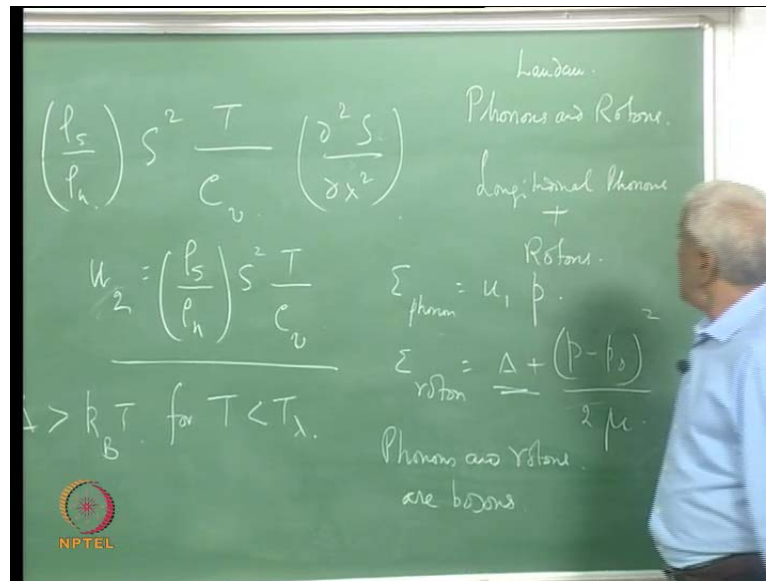 (ρs/ρn) S² T/Cv (∂²S/∂x²)
u₂ = (ρs/ρn) S² T/Cv
Δ > k_B T for T < T_λ.
Landau.
Phonons and Rotons.
Longitudinal Phonons
+
Rotons.
Ɛ phonon = u₁ p.
Ɛ roton = Δ + (p - p₀)²/2μ
Phonons and rotons
are bosons
NPTEL